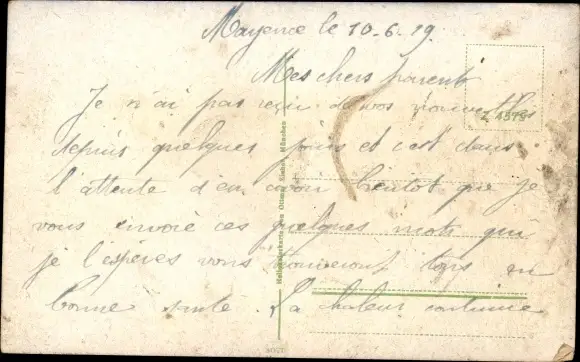 Mayence le 10-6-19.
Mes chers parents
Je n'ai pas reçu de vos nouvelles
Z 1373
depuis quelques jours et c'est dans
l'attente d'en avoir bientot que je
vous envoie ces quelques mots qui
je l'espères vous trouveront tous en
bonne santé. La chaleur continue
Ottmar Zieher München